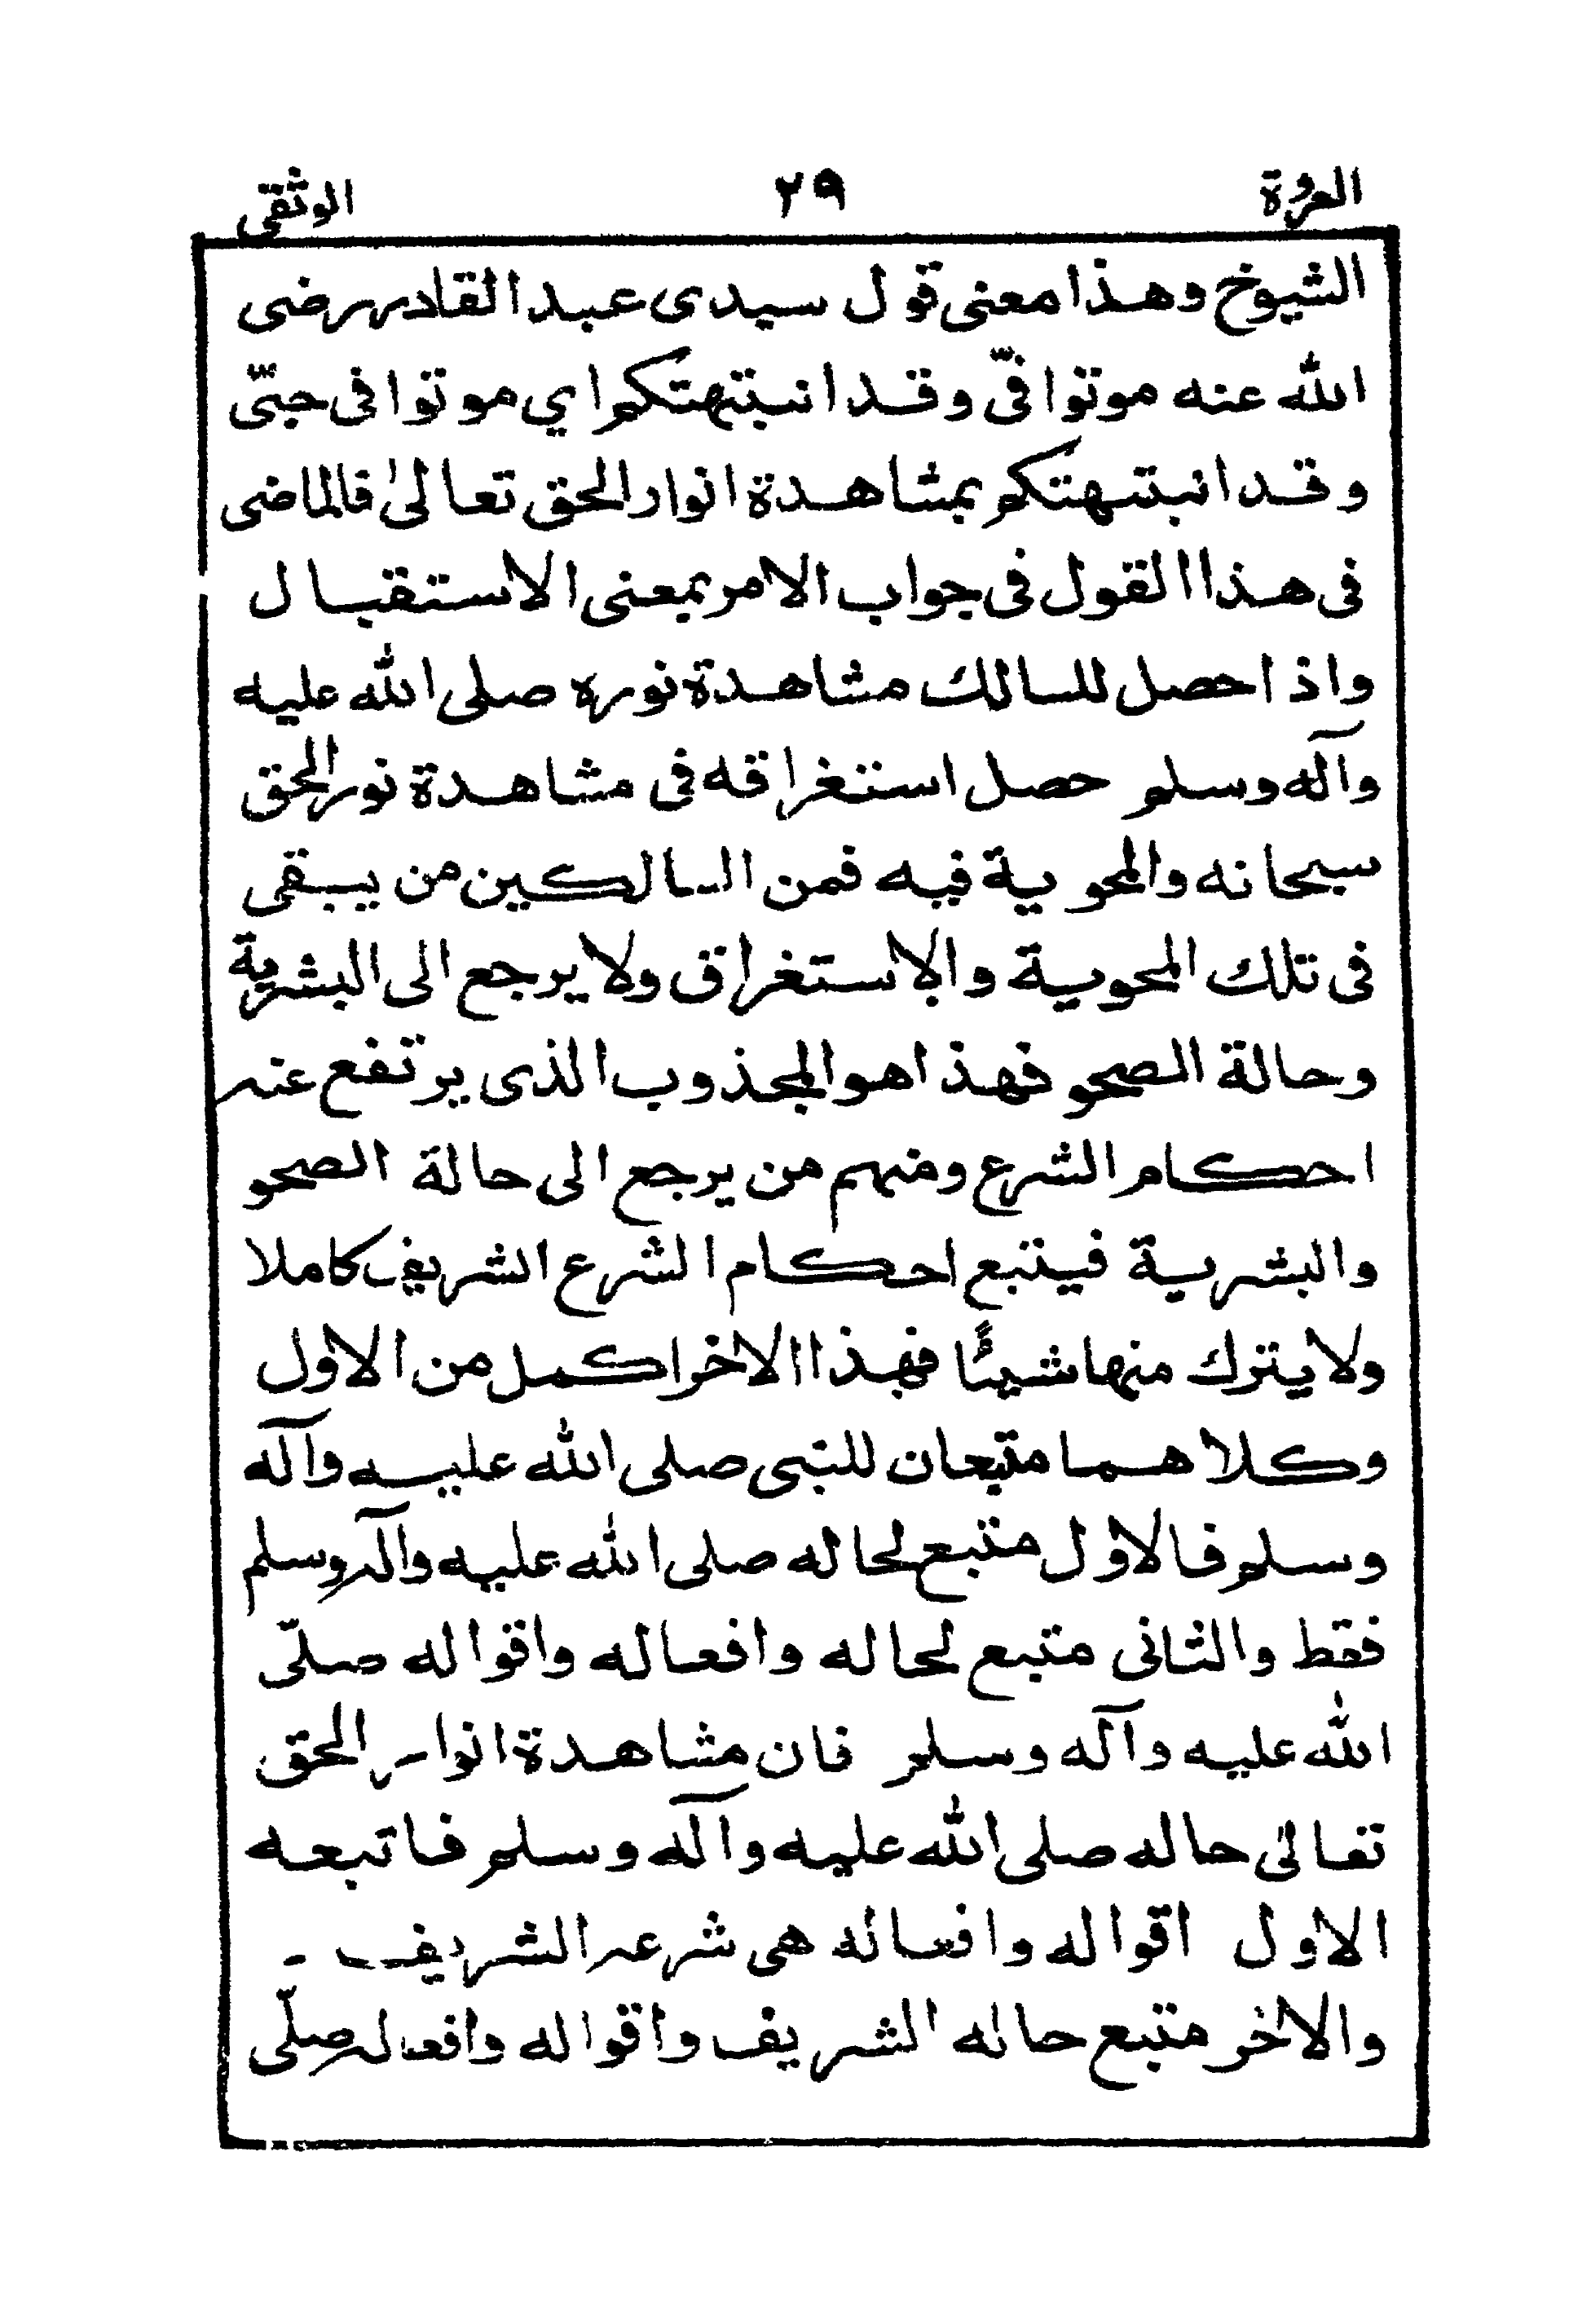 العروة ٢٩ الوثقى
الشيوخ وهذا معنى قول سيدى عبد القادر رضى
الله عنه موتوا فىّ وقد انبتهتكم اي موتوا فى حبّى
وقد انبتهتكم بمشاهدة انوار الحق تعالىٰ فالماضى
فى هذا القول فى جواب الامر بمعنى الاستقبال
واذا حصل للسالك مشاهدة نوره صلى الله عليه
وآله وسلم حصل استغراقه فى مشاهدة نور الحق
سبحانه والمحوية فيه فمن السالكين من يبقى
فى تلك المحوية والاستغراق ولا يرجع الى البشرية
وحالة الصحو فهذا هو المجذوب الذى يرتفع عنه
احكام الشرع ومنهم من يرجع الى حالة الصحو
والبشرية فيتبع احكام الشرع الشريف كاملا
ولا يترك منها شيئًا فهذا الاخر اكمل من الاول
وكلا هما متبعان للنبى صلى الله عليه وآله
وسلم فالاول متبع لحاله صلى الله عليه وآله وسلم
فقط والثانى متبع لحاله وافعاله واقواله صلّى
الله عليه وآله وسلم فان مشاهدة انوار الحق
تعالىٰ حاله صلى الله عليه وآله وسلم فاتبعه
الاول اقواله وافعاله هى شرعه الشريف -
والاخر متبع حاله الشريف واقواله وافعاله صلّى